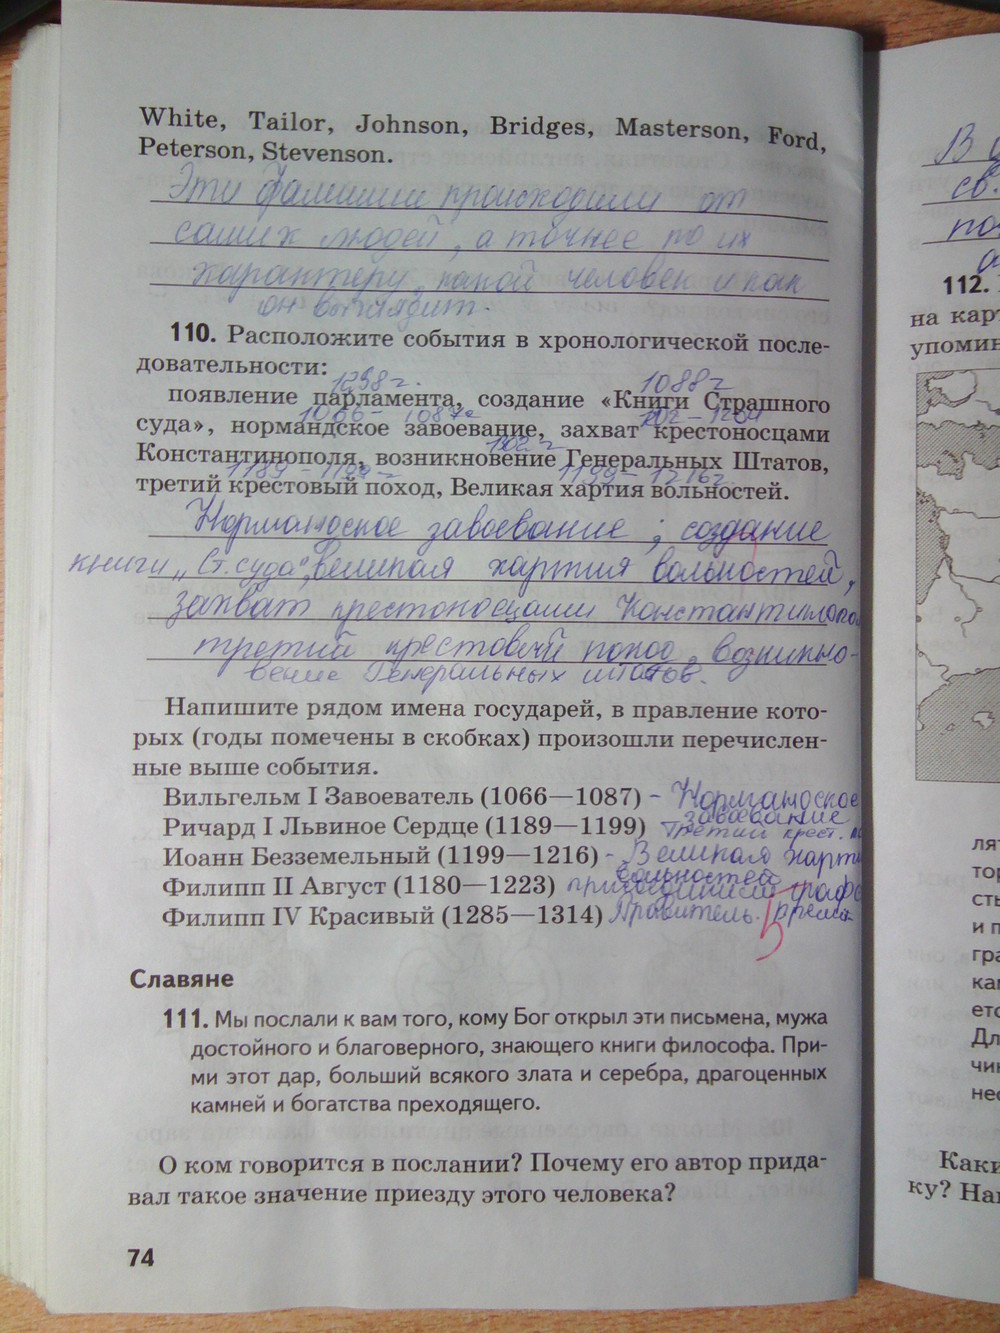 White, Tailor, Johnson, Bridges, Masterson, Ford,
Peterson, Stevenson.
Эти фамилии происходили от
самих людей, а точнее по их
характеру, какой человек и как
он выглядит.
110. Расположите события в хронологической после-
довательности:
1258г. 1088г
появление парламента, создание «Книги Страшного
1066- 1087г 1202-1204
суда», нормандское завоевание, захват крестоносцами
1302 г
Константинополя, возникновение Генеральных Штатов,
1189-1199 1199-1216г
третий крестовый поход, Великая хартия вольностей.
Нормандское завоевание, создание
книги „Ст. суда", великая хартия вольностей,
захват крестоносцами Константинопо
третий крестовый поход, возникно-
вение Генеральных штатов.
Напишите рядом имена государей, в правление кото-
рых (годы помечены в скобках) произошли перечислен-
ные выше события.
Вильгельм I Завоеватель (1066—1087) - Нормандское
завоевание
Ричард I Львиное Сердце (1189—1199) третий крест. п
Иоанн Безземельный (1199—1216) - Великая харти
вольностей
Филипп II Август (1180—1223)
Филипп IV Красивый (1285—1314) Правитель.
5
Славяне
111. Мы послали к вам того, кому Бог открыл эти письмена, мужа
достойного и благоверного, знающего книги философа. При-
ми этот дар, больший всякого злата и серебра, драгоценных
камней и богатства преходящего.
О ком говорится в послании? Почему его автор прида-
вал такое значение приезду этого человека?
74
В
св.
112.
на карт
упомин
лят
тор
сть
и п
гра
кам
етс
Дл
чин
нес
Каки
ку? Наг